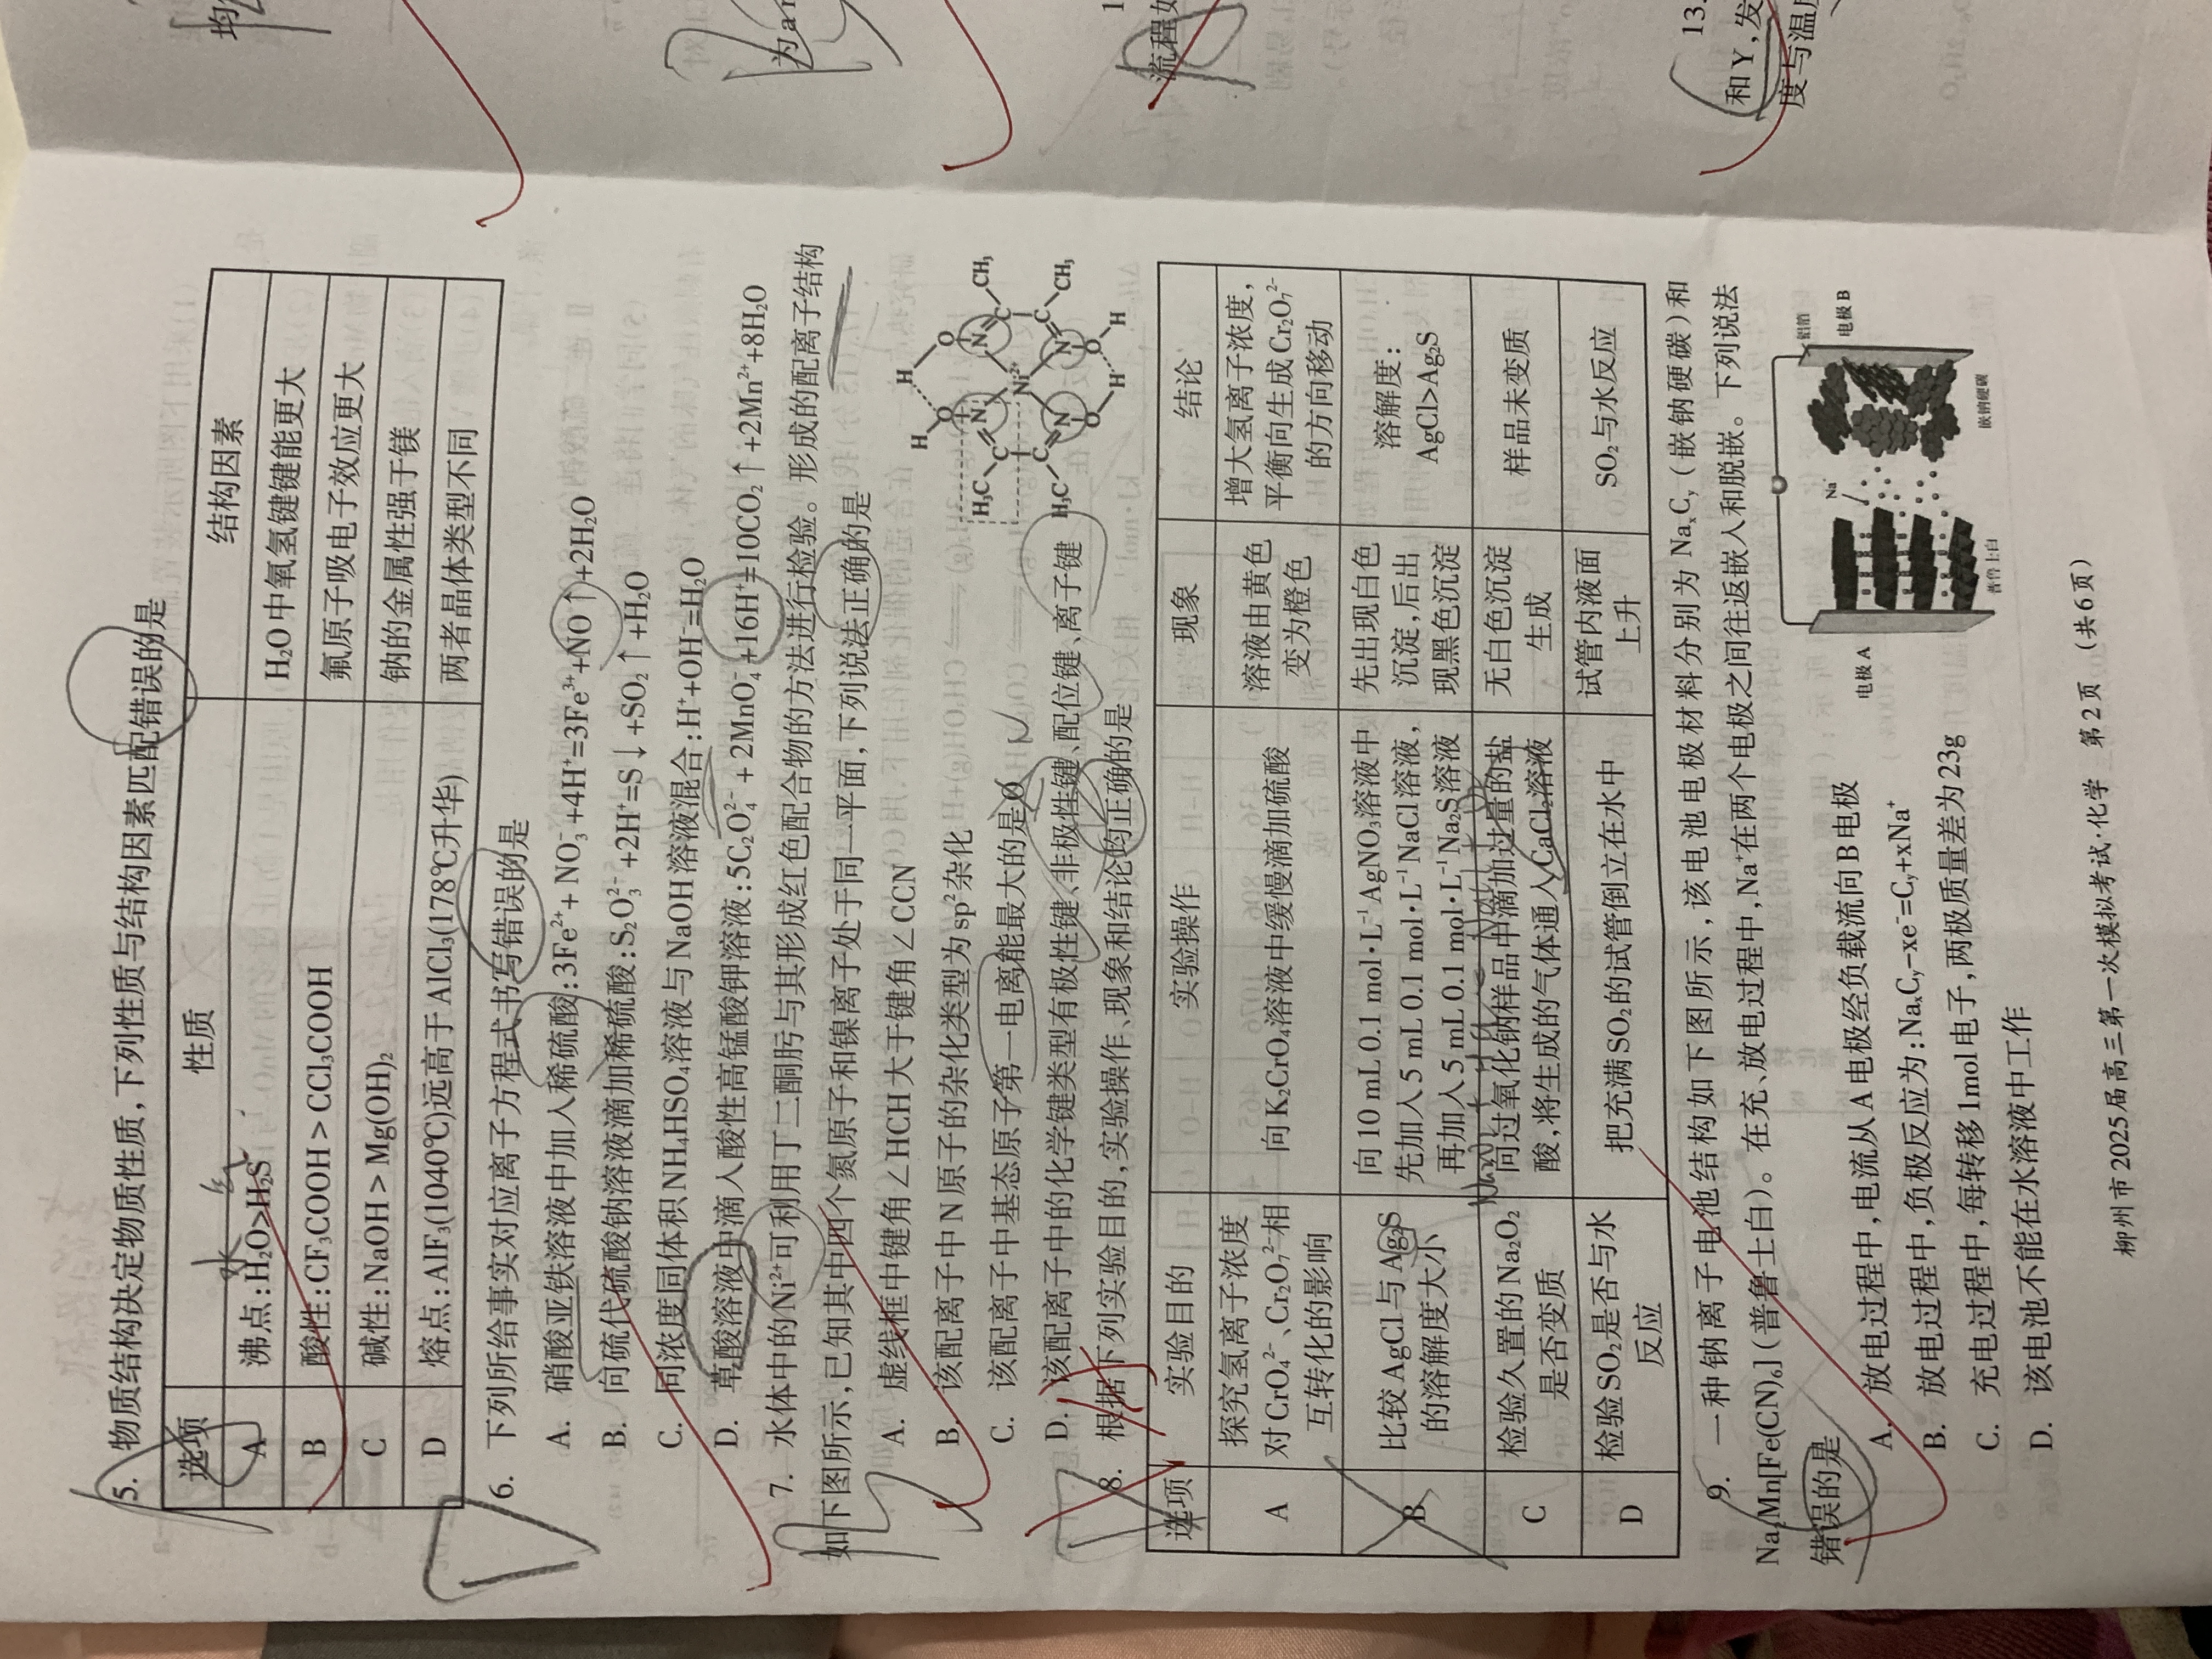 5. 物质结构决定物质性质,下列性质与结构因素匹配错误的是
选项 性质 结构因素
A 沸点:H₂O>H₂S H₂O中氧氢键键能更大
B 酸性:CF₃COOH > CCl₃COOH 氟原子吸电子效应更大
C 碱性:NaOH > Mg(OH)₂ 钠的金属性强于镁
D 熔点:AlF₃(1040℃)远高于AlCl₃(178℃升华) 两者晶体类型不同
6. 下列所给事实对应离子方程式书写错误的是
A. 硝酸亚铁溶液中加入稀硫酸:3Fe²⁺+NO₃⁻+4H⁺=3Fe³⁺+NO↑+2H₂O
B. 向硫代硫酸钠溶液滴加稀硫酸:S₂O₃²⁻+2H⁺=S↓+SO₂↑+H₂O
C. 同浓度同体积NH₄HSO₄溶液与NaOH溶液混合:H⁺+OH⁻=H₂O
D. 草酸溶液中滴入酸性高锰酸钾溶液:5C₂O₄²⁻+2MnO₄⁻+16H⁺=10CO₂↑+2Mn²⁺+8H₂O
7. 水体中的Ni²⁺可利用丁二酮肟与其形成红色配合物的方法进行检验。形成的配离子结构
如下图所示,已知其中四个氮原子和镍离子处于同一平面,下列说法正确的是
A. 虚线框中键角∠HCH大于键角∠CCN
B. 该配离子中N原子的杂化类型为sp²杂化
C. 该配离子中基态原子第一电离能最大的是O
D. 该配离子中的化学键类型有极性键、非极性键、配位键、离子键
H O H O
H₃C C N N C CH₃
Ni²⁺
H₃C C N N C CH₃
O H O H
8. 根据下列实验目的,实验操作、现象和结论均正确的是
选项 实验目的 实验操作 现象 结论
A 探究氢离子浓度对CrO₄²⁻、Cr₂O₇²⁻相互转化的影响 向K₂CrO₄溶液中缓慢滴加硫酸 溶液由黄色变为橙色 增大氢离子浓度,平衡向生成Cr₂O₇²⁻的方向移动
B 比较AgCl与Ag₂S的溶解度大小 向10 mL 0.1 mol·L⁻¹ AgNO₃溶液中先加入5 mL 0.1 mol·L⁻¹ NaCl溶液,再加入5 mL 0.1 mol·L⁻¹ Na₂S溶液 先出现白色沉淀,后出现黑色沉淀 溶解度:AgCl>Ag₂S
C 检验久置的Na₂O₂是否变质 向过氧化钠样品中滴加过量的盐酸,将生成的气体通入CaCl₂溶液 无白色沉淀生成 样品未变质
D 检验SO₂是否与水反应 把充满SO₂的试管倒立在水中 试管内液面上升 SO₂与水反应
9. 一种钠离子电池结构如下图所示,该电池电极材料分别为NaₓCᵧ(嵌钠硬碳)和
Na₂Mn[Fe(CN)₆](普鲁士白)。在充、放电过程中,Na⁺在两个电极之间往返嵌入和脱嵌。下列说法
错误的是
A. 放电过程中,电流从A电极经负载流向B电极
B. 放电过程中,负极反应为:NaₓCᵧ-xe⁻=Cᵧ+xNa⁺
C. 充电过程中,每转移1mol电子,两极质量差为23g
D. 该电池不能在水溶液中工作
电极A
普鲁士白
Na⁺
铝箔
电极B
嵌钠硬碳
柳州市2025届高三第一次模拟考试·化学 第2页 (共6页)
均
为
流程如
13.
和Y,发
度与温度